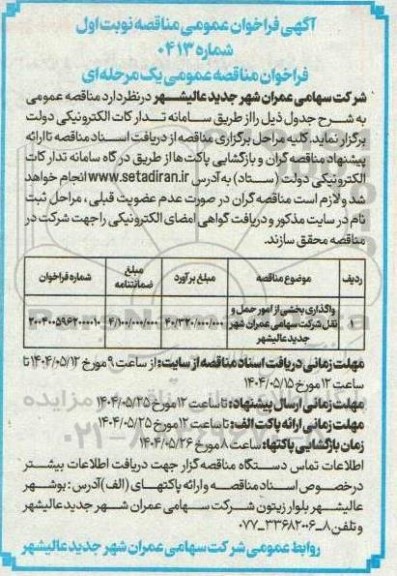 آگهی فراخوان عمومی مناقصه نوبت اول
شماره ۰۴۱۳
فراخوان مناقصه عمومی یک مرحله ای
شرکت سهامی عمران شهر جدید عالیشهر در نظر دارد مناقصه عمومی
به شرح جدول ذیل را از طریق سامانه تدارکات الکترونیکی دولت
برگزار نماید. کلیه مراحل برگزاری مناقصه از دریافت اسناد مناقصه تا ارائه
پیشنهاد مناقصه گران و بازگشایی پاکت ها از طریق درگاه سامانه تدارکات
الکترونیکی دولت (ستاد) به آدرس www.setadiran.ir انجام خواهد
شد و لازم است مناقصه گران در صورت عدم عضویت قبلی، مراحل ثبت
نام در سایت مذکور و دریافت گواهی امضای الکترونیکی را جهت شرکت در
مناقصه محقق سازند.
ردیف موضوع مناقصه مبلغ برآورد مبلغ ضمانتنامه شماره فراخوان
واگذاری بخشی از امور حمل و
نقل شرکت سهامی عمران شهر
جدید عالیشهر
۴۰/۳۲۰/۰۰۰/۰۰۰ ۴/۱۰۰/۰۰۰/۰۰۰ ۲۰۰۴۰۰۵۹۶۲۰۰۰۰۱۰
مهلت زمانی دریافت اسناد مناقصه از سایت: از ساعت ۹ مورخ ۱۴۰۴/۰۵/۱۲ تا
ساعت ۱۲ مورخ ۱۴۰۴/۰۵/۱۵
مهلت زمانی ارسال پیشنهاد: تا ساعت ۱۲ مورخ ۱۴۰۴/۰۵/۲۵
مهلت زمانی ارائه پاکت الف: تا ساعت ۱۲ مورخ ۱۴۰۴/۰۵/۲۵
زمان بازگشایی پاکتها: ساعت ۸ مورخ ۱۴۰۴/۰۵/۲۶
اطلاعات تماس دستگاه مناقصه گزار جهت دریافت اطلاعات بیشتر
در خصوص اسناد مناقصه و ارائه پاکتهای (الف) آدرس: بوشهر
عالیشهر بلوار زیتون شرکت سهامی عمران شهر جدید عالیشهر
و تلفن ۸_۳۳۶۸۲۰۰۶_۰۷۷
روابط عمومی شرکت سهامی عمران شهر جدید عالیشهر